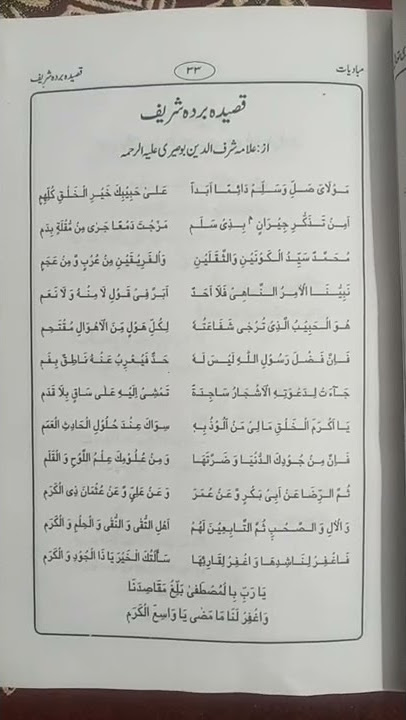 مبادیات ۳۳ قصیدہ بردہ شریف
قصیدہ بردہ شریف
از: علامہ شرف الدین بوصیری علیہ الرحمہ
مَوْلَایَ صَلِّ وَسَلِّمْ دَائِمًا اَبَدًا عَلٰی حَبِیْبِكَ خَیْرِ الْخَلْقِ كُلِّهِمِ
اَمِنْ تَذَكُّرِ جِیْرَانٍ م بِذِیْ سَلَمِ مَزَجْتَ دَمْعًا جَرٰی مِنْ مُّقْلَةٍ بِدَمِ
مُحَمَّدٌ سَیِّدُ الْكَوْنَیْنِ وَالثَّقَلَیْنِ وَالْفَرِیْقَیْنِ مِنْ عُرْبٍ وَّ مِنْ عَجَمِ
نَبِیُّنَا الْاٰمِرُ النَّاهِیْ فَلَا اَحَدٌ اَبَرَّ فِیْ قَوْلِ لَا مِنْهُ وَ لَا نَعَمِ
هُوَ الْحَبِیْبُ الَّذِیْ تُرْجٰی شَفَاعَتُهٗ لِكُلِّ هَوْلٍ مِّنَ الْاَهْوَالِ مُقْتَحِمِ
فَاِنَّ فَضْلَ رَسُوْلِ اللّٰهِ لَیْسَ لَهٗ حَدٌّ فَیُعْرِبَ عَنْهُ نَاطِقٌ بِفَمِ
جَآءَتْ لِدَعْوَتِهِ الْاَشْجَارُ سَاجِدَةً تَمْشِیْ اِلَیْهِ عَلٰی سَاقٍ بِلَا قَدَمِ
یَا اَكْرَمَ الْخَلْقِ مَا لِیْ مَنْ اَلُوْذُ بِهٖ سِوَاكَ عِنْدَ حُلُوْلِ الْحَادِثِ الْعَمَمِ
فَاِنَّ مِنْ جُوْدِكَ الدُّنْیَا وَ ضَرَّتَهَا وَ مِنْ عُلُوْمِكَ عِلْمُ اللَّوْحِ وَ الْقَلَمِ
ثُمَّ الرِّضَا عَنْ اَبِیْ بَكْرٍ وَّ عَنْ عُمَرَ وَ عَنْ عَلِیٍّ وَّ عَنْ عُثْمَانَ ذِی الْكَرَمِ
وَ الْاٰلِ وَ الصَّحْبِ ثُمَّ التَّابِعِیْنَ لَهُمْ اَهْلِ التُّقٰی وَ النُّقٰی وَ الْحِلْمِ وَ الْكَرَمِ
فَاغْفِرْ لِنَاشِدِهَا وَ اغْفِرْ لِقَارِئِهَا سَاَلْتُكَ الْخَیْرَ یَا ذَا الْجُوْدِ وَ الْكَرَمِ
یَا رَبِّ بِالْمُصْطَفٰی بَلِّغْ مَقَاصِدَنَا
وَ اغْفِرْ لَنَا مَا مَضٰی یَا وَاسِعَ الْكَرَمِ